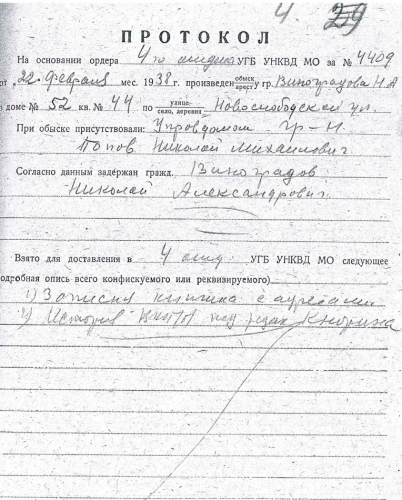 4 29
ПРОТОКОЛ
На основании ордера 4го отдела УГБ УНКВД МО за № 4409
от „22" февраля мес. 1938 г. произведен обыск арест у гр. Виноградова Н А
в доме № 52 кв. № 44 по улице село, деревня Новослободской ул.
При обыске присутствовали: Управдомом гр-н.
Попов Николай Михайлович
Согласно данным задержан гражд. Виноградов
Николай Александрович.
Взято для доставления в 4 отд. УГБ УНКВД МО следующее
подробная опись всего конфискуемого или реквизируемого)
1) Записная книжка с адресами
2) История ВКП/б под редак. Кнорина